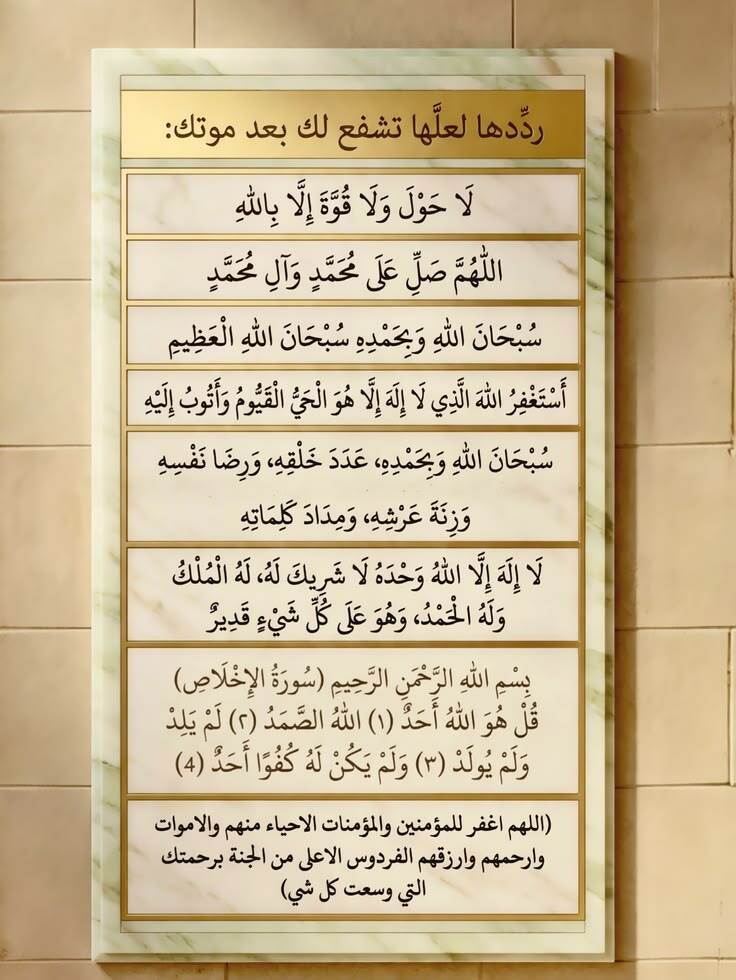 ردِّدها لعلَّها تشفع لك بعد موتك:
لَا حَوْلَ وَلَا قُوَّةَ إِلَّا بِاللهِ
اللَّهُمَّ صَلِّ عَلَى مُحَمَّدٍ وَآلِ مُحَمَّدٍ
سُبْحَانَ اللهِ وَبِحَمْدِهِ سُبْحَانَ اللهِ الْعَظِيمِ
أَسْتَغْفِرُ اللهَ الَّذِي لَا إِلَهَ إِلَّا هُوَ الْحَيُّ الْقَيُّومُ وَأَتُوبُ إِلَيْهِ
سُبْحَانَ اللهِ وَبِحَمْدِهِ، عَدَدَ خَلْقِهِ، وَرِضَا نَفْسِهِ
وَزِنَةَ عَرْشِهِ، وَمِدَادَ كَلِمَاتِهِ
لَا إِلَهَ إِلَّا اللهُ وَحْدَهُ لَا شَرِيكَ لَهُ، لَهُ الْمُلْكُ
وَلَهُ الْحَمْدُ، وَهُوَ عَلَى كُلِّ شَيْءٍ قَدِيرٌ
بِسْمِ اللهِ الرَّحْمَنِ الرَّحِيمِ (سُورَةُ الإِخْلَاصِ)
قُلْ هُوَ اللهُ أَحَدٌ (١) اللهُ الصَّمَدُ (٢) لَمْ يَلِدْ
وَلَمْ يُولَدْ (٣) وَلَمْ يَكُنْ لَهُ كُفُوًا أَحَدٌ (4)
(اللهم اغفر للمؤمنين والمؤمنات الاحياء منهم والاموات
وارحمهم وارزقهم الفردوس الاعلى من الجنة برحمتك
التي وسعت كل شي)